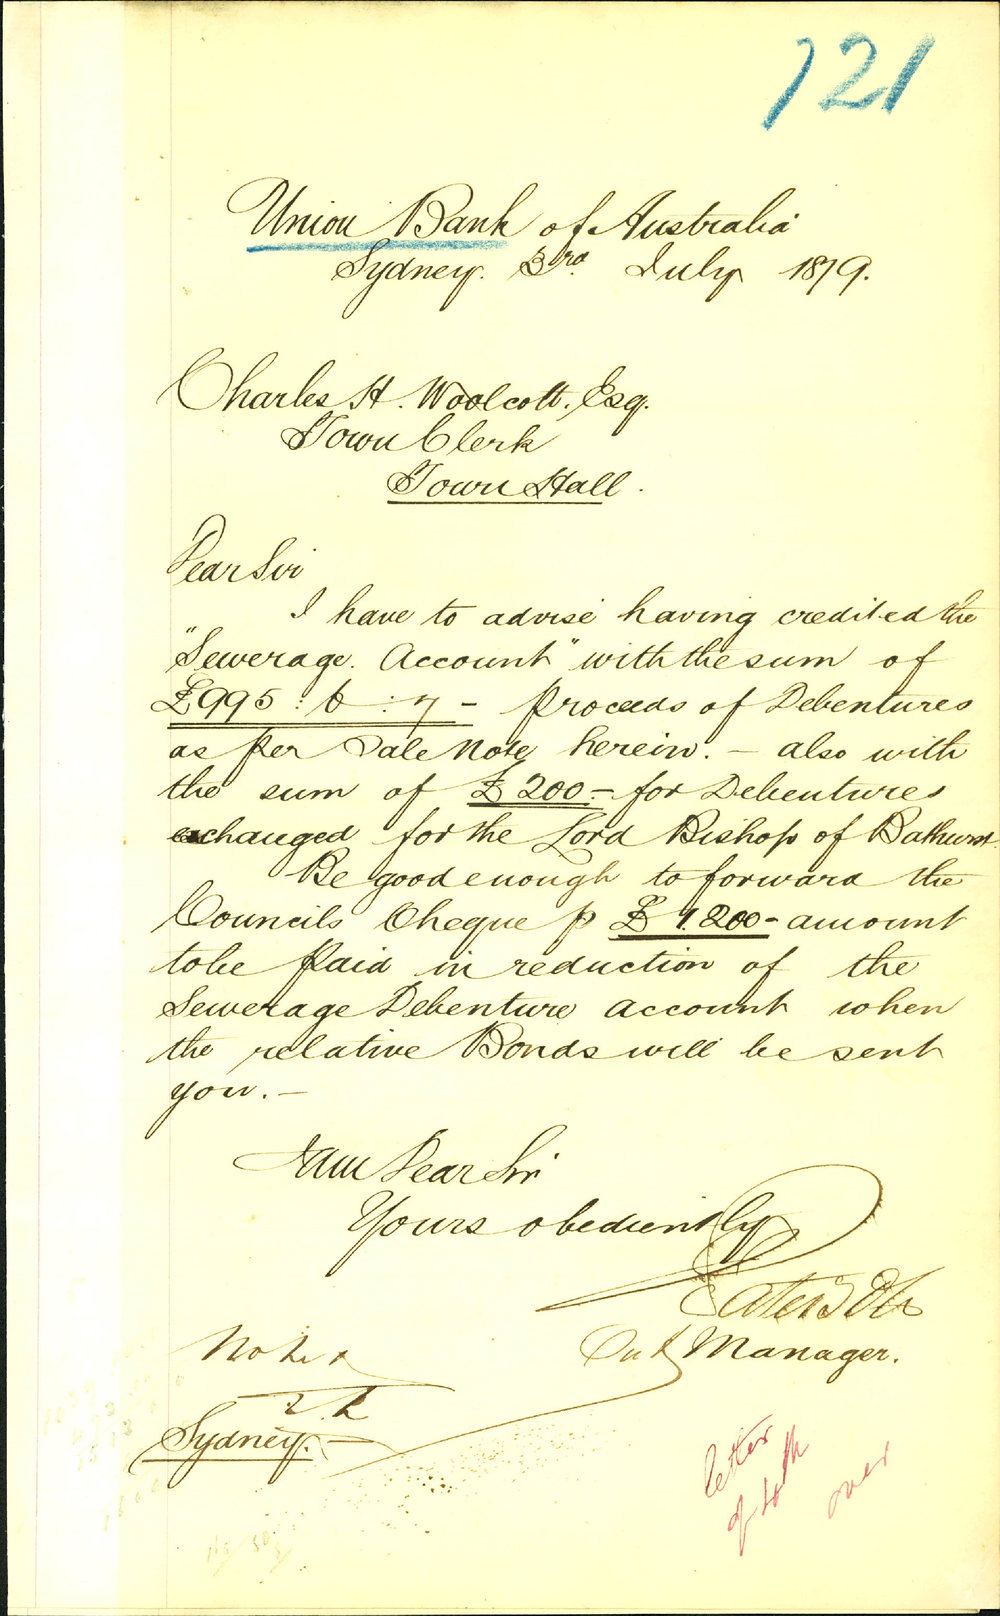 721
Union Bank of Australia
Sydney. 3rd July 1879.
Charles H. Woolcott. Esq.
Town Clerk
Town Hall.
Dear Sir
I have to advise having credited the
"Sewerage. Account" with the sum of
£995 : 6 : 7 - proceeds of Debentures
as per Sale Note herein. - also with
the sum of £200 - for Debentures
exchanged for the Lord Bishop of Bathurst.
Be good enough to forward the
Councils Cheque p £1200 - amount
to be paid in reduction of the
Sewerage Debenture account when
the relative Bonds will be sent
you. -
I am Dear Sir
Yours obediently
Manager.
Noted
Sydney. -
letter
of 10th
over